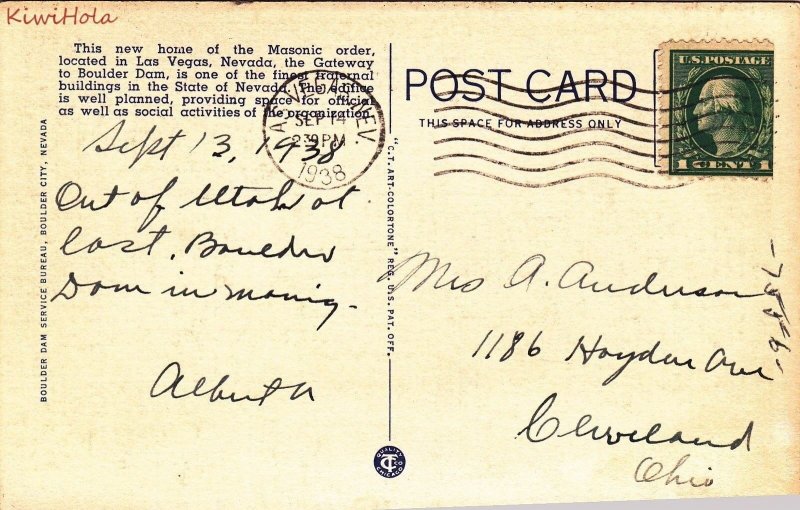 KiwiHola
This new home of the Masonic order,
located in Las Vegas, Nevada, the Gateway
to Boulder Dam, is one of the finest fraternal
buildings in the State of Nevada. The edifice
is well planned, providing space for official
as well as social activities of the organization.
SEP 14
PM
1938
NEV.
Sept 13, 1938
Out of Utah at
last. Boulder
Dam in
Alberta
BOULDER DAM SERVICE BUREAU, BOULDER CITY, NEVADA
"C.T. ART-COLORTONE" REG. U.S. PAT. OFF.
QUALITY
CT CO
CHICAGO
POST CARD
THIS SPACE FOR ADDRESS ONLY
U.S. POSTAGE
1 CENT 1
Mrs A. Anderson
1186 Hayden Ave
Cleveland
Ohio